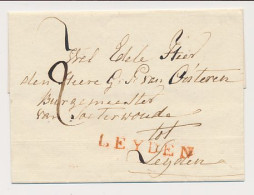 Wel Edele Heer
den Heere G. P. van Oosteren
Burgemeester
van Soeterwoude
tot
LEYDEN
Leyden